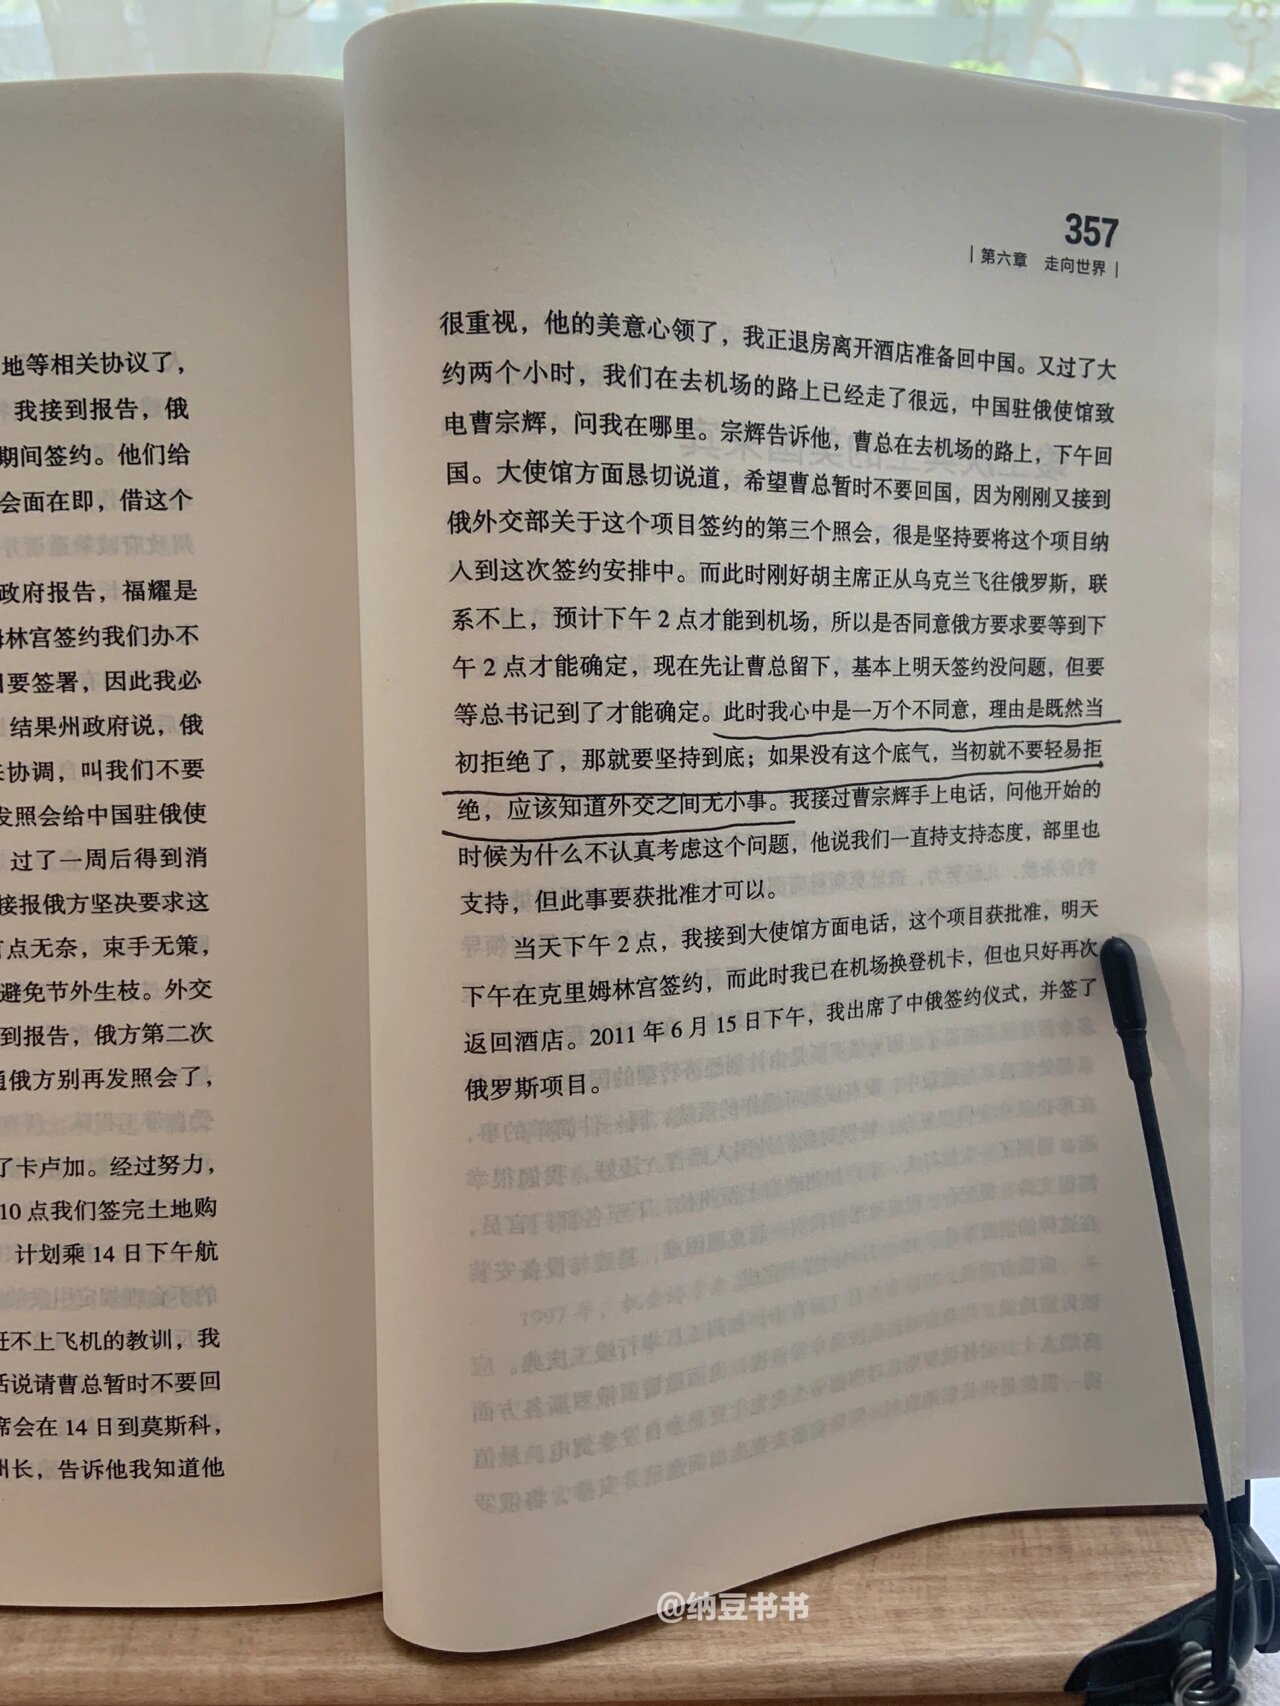 地等相关协议了，
我接到报告，俄
期间签约。他们给
会面在即，借这个
政府报告，福耀是
姆林宫签约我们办不
要签署，因此我必
结果州政府说，俄
协调，叫我们不要
发照会给中国驻俄使
过了一周后得到消
接报俄方坚决要求这
有点无奈，束手无策，
避免节外生枝。外交
到报告，俄方第二次
俄方别再发照会了，
了卡卢加。经过努力，
10点我们签完土地购
计划乘14日下午航
赶不上飞机的教训，我
话说请曹总暂时不要回
席会在14日到莫斯科，
州长，告诉他我知道他
357
第六章 走向世界
很重视，他的美意心领了，我正退房离开酒店准备回中国。又过了大
约两个小时，我们在去机场的路上已经走了很远，中国驻俄使馆致
电曹宗辉，问我在哪里。宗辉告诉他，曹总在去机场的路上，下午回
国。大使馆方面恳切说道，希望曹总暂时不要回国，因为刚刚又接到
俄外交部关于这个项目签约的第三个照会，很是坚持要将这个项目纳
入到这次签约安排中。而此时刚好胡主席正从乌克兰飞往俄罗斯，联
系不上，预计下午2点才能到机场，所以是否同意俄方要求要等到下
午2点才能确定，现在先让曹总留下，基本上明天签约没问题，但要
等总书记到了才能确定。此时我心中是一万个不同意，理由是既然当
初拒绝了，那就要坚持到底；如果没有这个底气，当初就不要轻易拒
绝，应该知道外交之间无小事。我接过曹宗辉手上电话，问他开始的
时候为什么不认真考虑这个问题，他说我们一直持支持态度，部里也
支持，但此事要获批准才可以。
当天下午2点，我接到大使馆方面电话，这个项目获批准，明天
下午在克里姆林宫签约，而此时我已在机场换登机卡，但也只好再次
返回酒店。2011年6月15日下午，我出席了中俄签约仪式，并签了
俄罗斯项目。
@纳豆书书